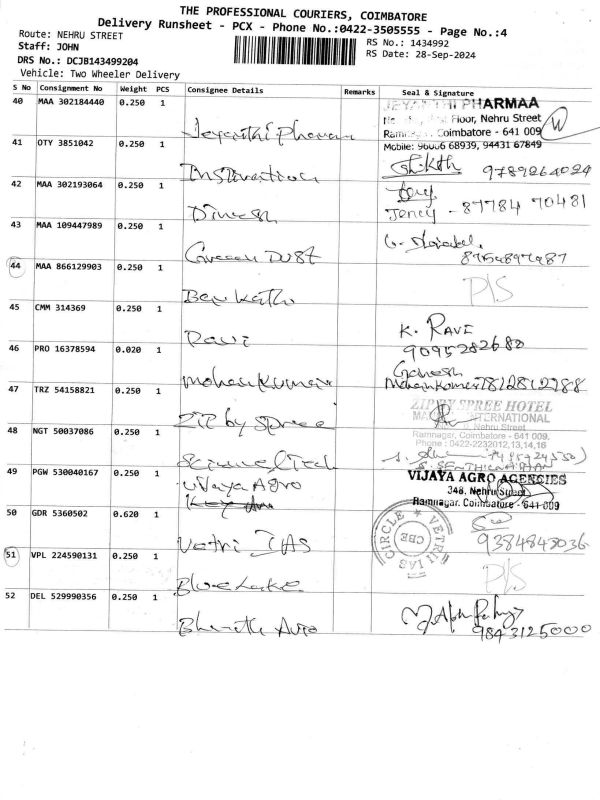 THE PROFESSIONAL COURIERS, COIMBATORE
Delivery Runsheet - PCX - Phone No.:0422-3505555 - Page No.:4
Route: NEHRU STREET
RS No.: 1434992
Staff: JOHN
RS Date: 28-Sep-2024
DRS No.: DCJB143499204
Vehicle: Two Wheeler Delivery
S No Consignment No Weight PCS Consignee Details Remarks Seal & Signature
40 MAA 302184440 0.250 1
JEYANTHI PHARMAA
Floor, Nehru Street
Coimbatore - 641 009
Jeyanthi Pharmaa
Mobile: 96006 68939, 94431 67849
41 OTY 3851042 0.250 1
9789264024
42 MAA 302193064 0.250 1
Dinesh
Jency - 87784 70481
43 MAA 109447989 0.250 1
Green Dust
44 MAA 866129903 0.250 1
P/S
45 CMM 314369 0.250 1
Ravi
K. RAVI
9095282680
46 PRO 16378594 0.020 1
Ganesh
Mohankumar
Mohankumar
47 TRZ 54158821 0.250 1
ZIP BY SPREE HOTEL
INTERNATIONAL
Nehru Street
Zip by Spree
48 NGT 50037086 0.250 1
Ramnagar, Coimbatore - 641 009.
Phone : 0422-2232012,13,14,16
Science Tech
49 PGW 530040167 0.250 1
Vijaya Agro
VIJAYA AGRO AGENCIES
348, Nehru Street
Ramnagar, Coimbatore - 641 009
50 GDR 5360502 0.620 1
VETRII IAS CIRCLE
CBE
Vetri IAS
9384843036
51 VPL 224590131 0.250 1
P/S
Blue Lake
52 DEL 529990356 0.250 1
Bharath Auto
9843125000